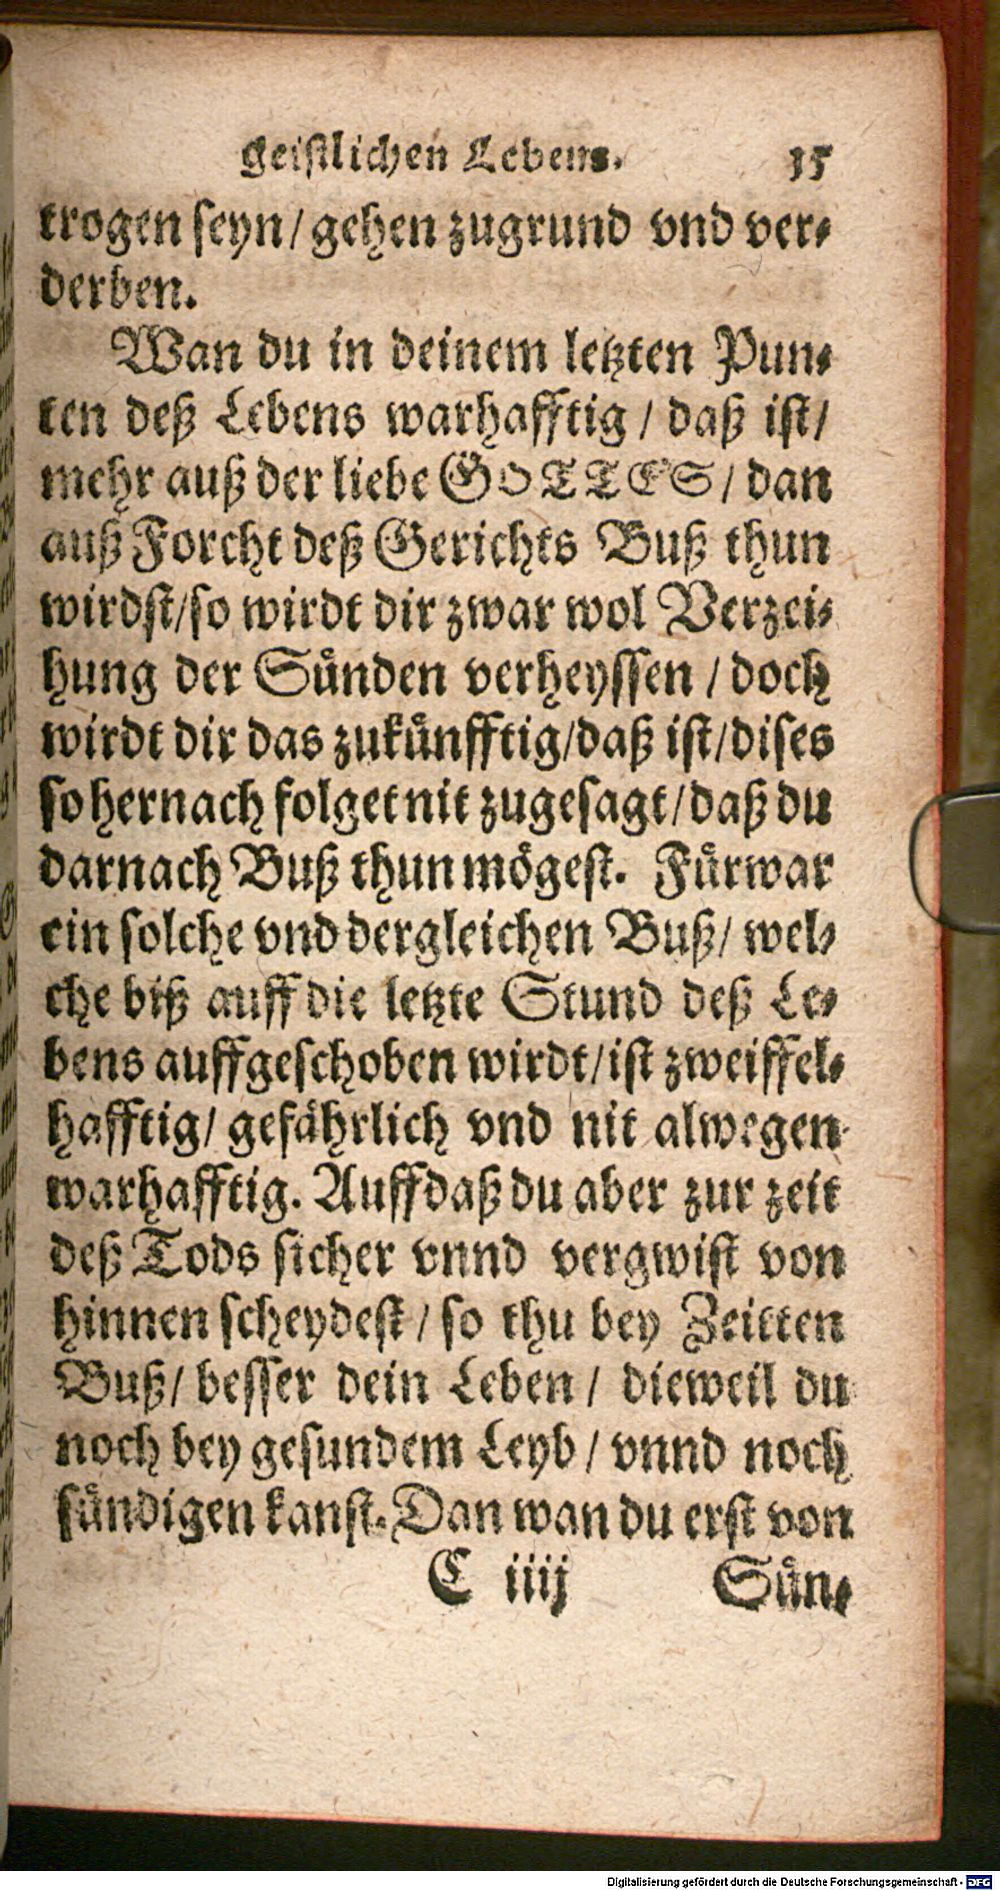 geistlichen Lebens. 15
trogen seyn/ gehen zugrund vnd ver-
derben.
Wan du in deinem letzten Pun-
ten deß Lebens warhafftig/ daß ist/
mehr auß der liebe GOTTES/ dan
auß Forcht deß Gerichts Buß thun
wirdst/so wirdt dir zwar wol Verzei-
hung der Sünden verheyssen/ doch
wirdt dir das zukünfftig/daß ist/dises
so hernach folget nit zugesagt/daß du
darnach Buß thun mögest. Fürwar
ein solche vnd dergleichen Buß/ wel-
che biß auff die letzte Stund deß Le-
bens auffgeschoben wirdt/ist zweiffel-
hafftig/ gefährlich vnd nit alwegen
warhafftig. Auff daß du aber zur zeit
deß Tods sicher vnnd vergwist von
hinnen scheydest/ so thu bey Zeitten
Buß/ besser dein Leben/ dieweil du
noch bey gesundem Leyb/ vnnd noch
sündigen kanst. Dan wan du erst von
C iiij Sün-
Digitalisierung gefördert durch die Deutsche Forschungsgemeinschaft - DFG